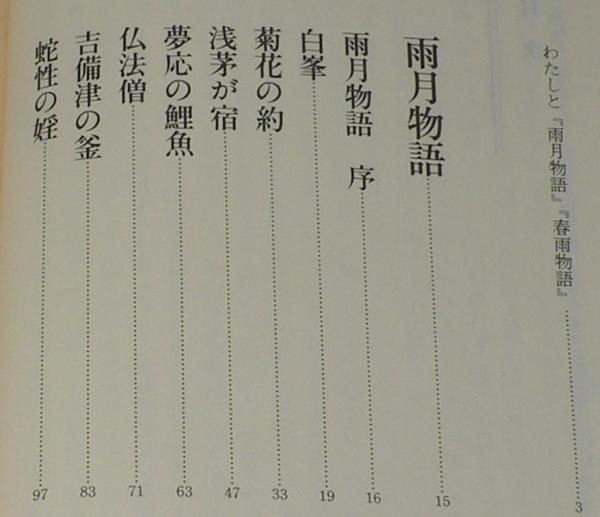 わたしと『雨月物語』『春雨物語』……3
雨月物語……15
雨月物語　序……16
白峯……19
菊花の約……33
浅茅が宿……47
夢応の鯉魚……63
仏法僧……71
吉備津の釜……83
蛇性の婬……97